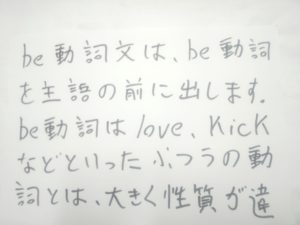 be動詞文は、be動詞
を主語の前に出します。
be動詞はlove、kick
などといったふつうの動
詞とは、大きく性質が違